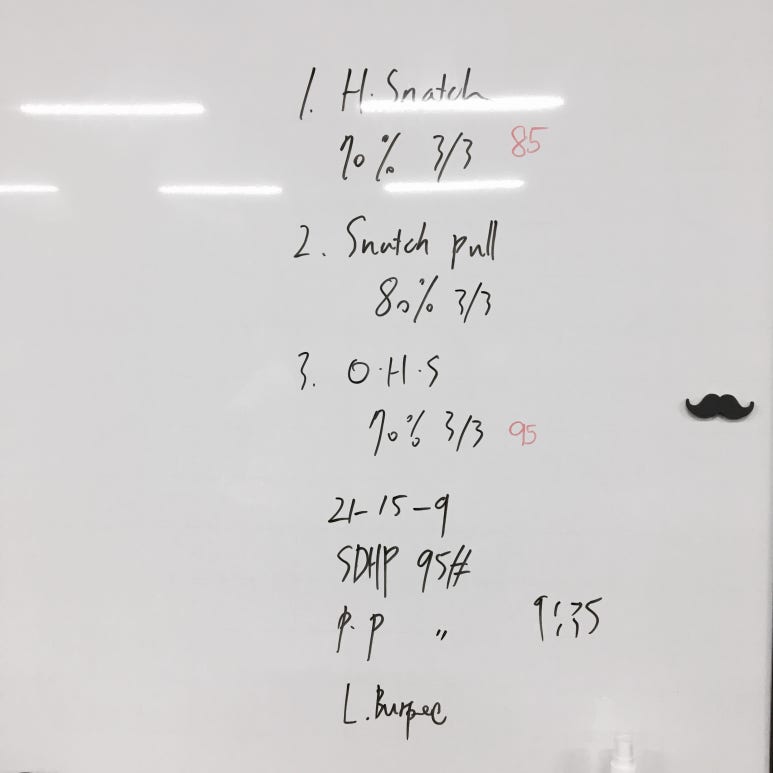 1. H. Snatch
70% 3/3 85
2. Snatch pull
80% 3/3
3. O.H.S
70% 3/3 95
21-15-9
SDHP 95#
P.P " 9:35
L.Burpee